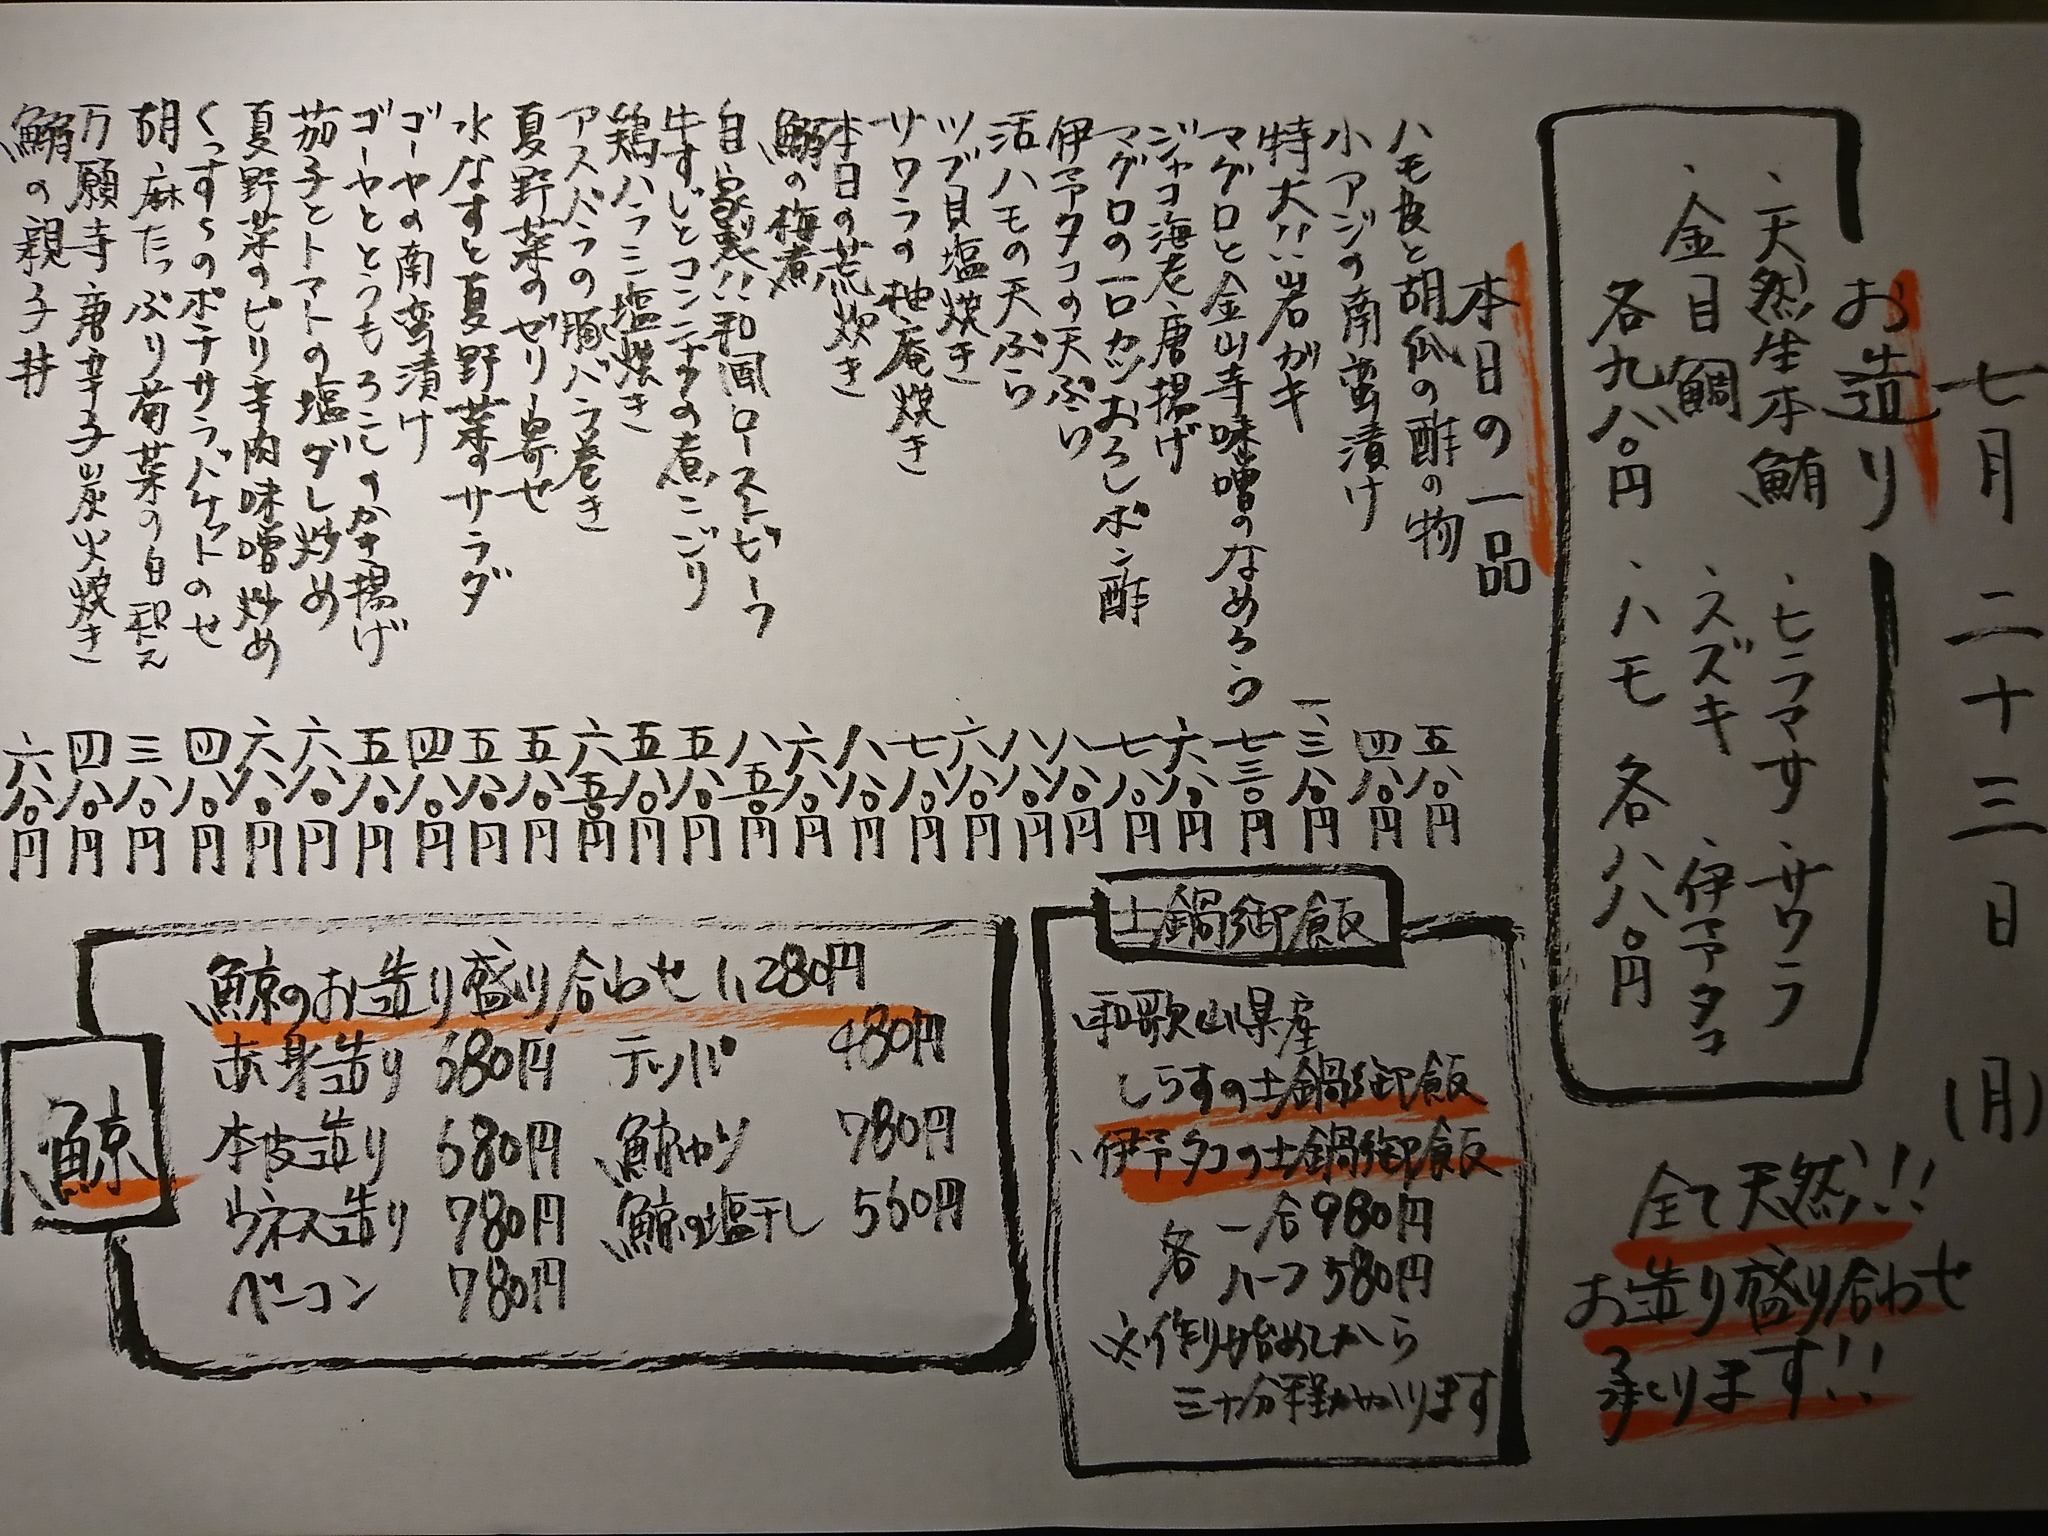 七月二十三日(月)
お造り
・天然生本鮪
・金目鯛
各九八〇円
・ヒラマサ・サワラ
・スズキ・伊予タコ
・ハモ 各八八〇円
全て天然!!
お造り盛り合わせ
承ります!!
本日の一品
ハモ皮と胡瓜の酢の物 五八〇円
小アジの南蛮漬け 四八〇円
特大!!岩ガキ 一、三八〇円
マグロと金山寺味噌のなめろう 七三〇円
ジャコ海老唐揚げ 六八〇円
マグロの一口カツおろしポン酢 七八〇円
伊予タコの天ぷら 八八〇円
活ハモの天ぷら 八八〇円
ツブ貝塩焼き 六八〇円
サワラの柚庵焼き 七八〇円
本日の荒炊き 八八〇円
鰯の梅煮 六八〇円
自家製!!和風ローストビーフ 八五〇円
牛すじとコンニャクの煮こごり 五八〇円
鶏ハラミ塩焼き 五八〇円
アスパラの豚バラ巻き 六五〇円
夏野菜のゼリー寄せ 五八〇円
水なすと夏野菜のサラダ 五八〇円
ゴーヤの南蛮漬け 四八〇円
ゴーヤととうもろこしのかき揚げ 五八〇円
茄子とトマトの塩ダレ炒め 六八〇円
夏野菜のピリ辛肉味噌炒め 六八〇円
ポテサラバケットのせ 四八〇円
胡麻たっぷり菊菜の白和え 三八〇円
万願寺唐辛子炭火焼き 四八〇円
鰯の親子丼 六八〇円
土鍋御飯
・和歌山県産
しらすの土鍋御飯
・伊予タコの土鍋御飯
各 一合980円
ハーフ580円
※作り始めてから
三十分程かかります
鯨
鯨のお造り盛り合わせ 1,280円
赤身造り 680円 テッパ 480円
本皮造り 680円 鯨カツ 780円
ウネス造り 780円 鯨の塩干し 560円
ベーコン 780円